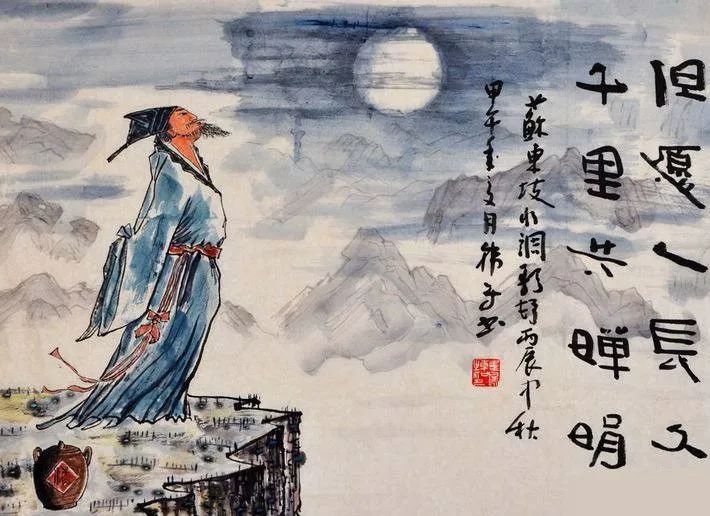 但愿人長久
千里共嬋娟
蘇東坡水調歌頭丙辰中秋
甲午年月书